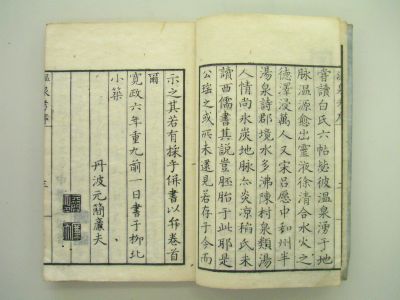 嘗讀白氏六帖㷀彼溫泉湧于地
脉溫源愈出靈液徐清合水火之
德澤浸萬人又宋呂愿中和州半
湯泉詩郡境水多沸陳村泉類湯
人情尚水炭地脉亦炎涼稱氏未
讀西儒書其説豈胚胎于此耶是
公瑤之或所未還見若存于今而
示之其若有採乎併書以弁卷首
爾
寛政六年重九前一日書于柳北
小築
丹波元簡廉夫
溫泉考序
三